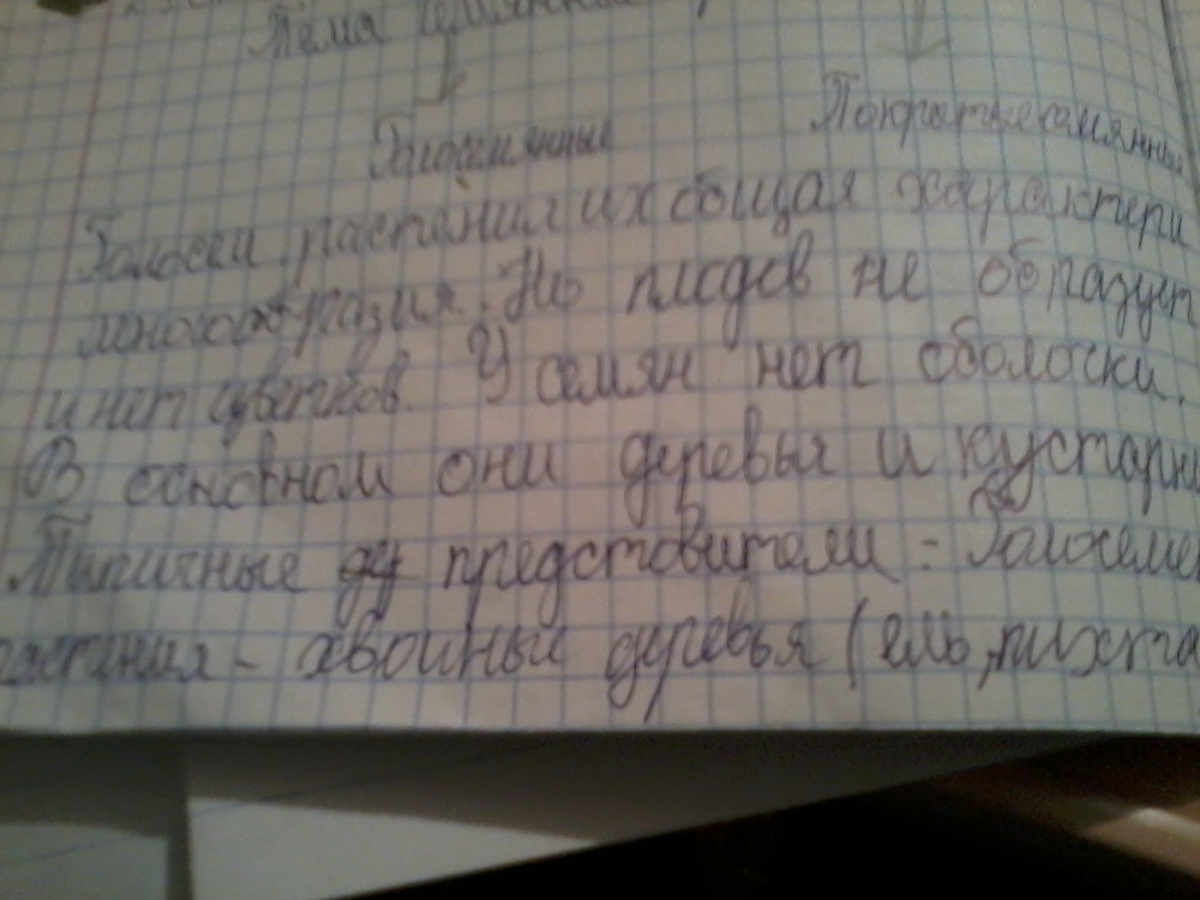 Тема семянные
Голосемянные Покрытые семянные
Голоски растения их общая характери
многообразия. Но плодов не образует
и нет цветков. У семян нет оболоски.
В основном они деревья и кустарни
Типичные представители - Голосеме
растения - хвойные деревья (ель, пихта